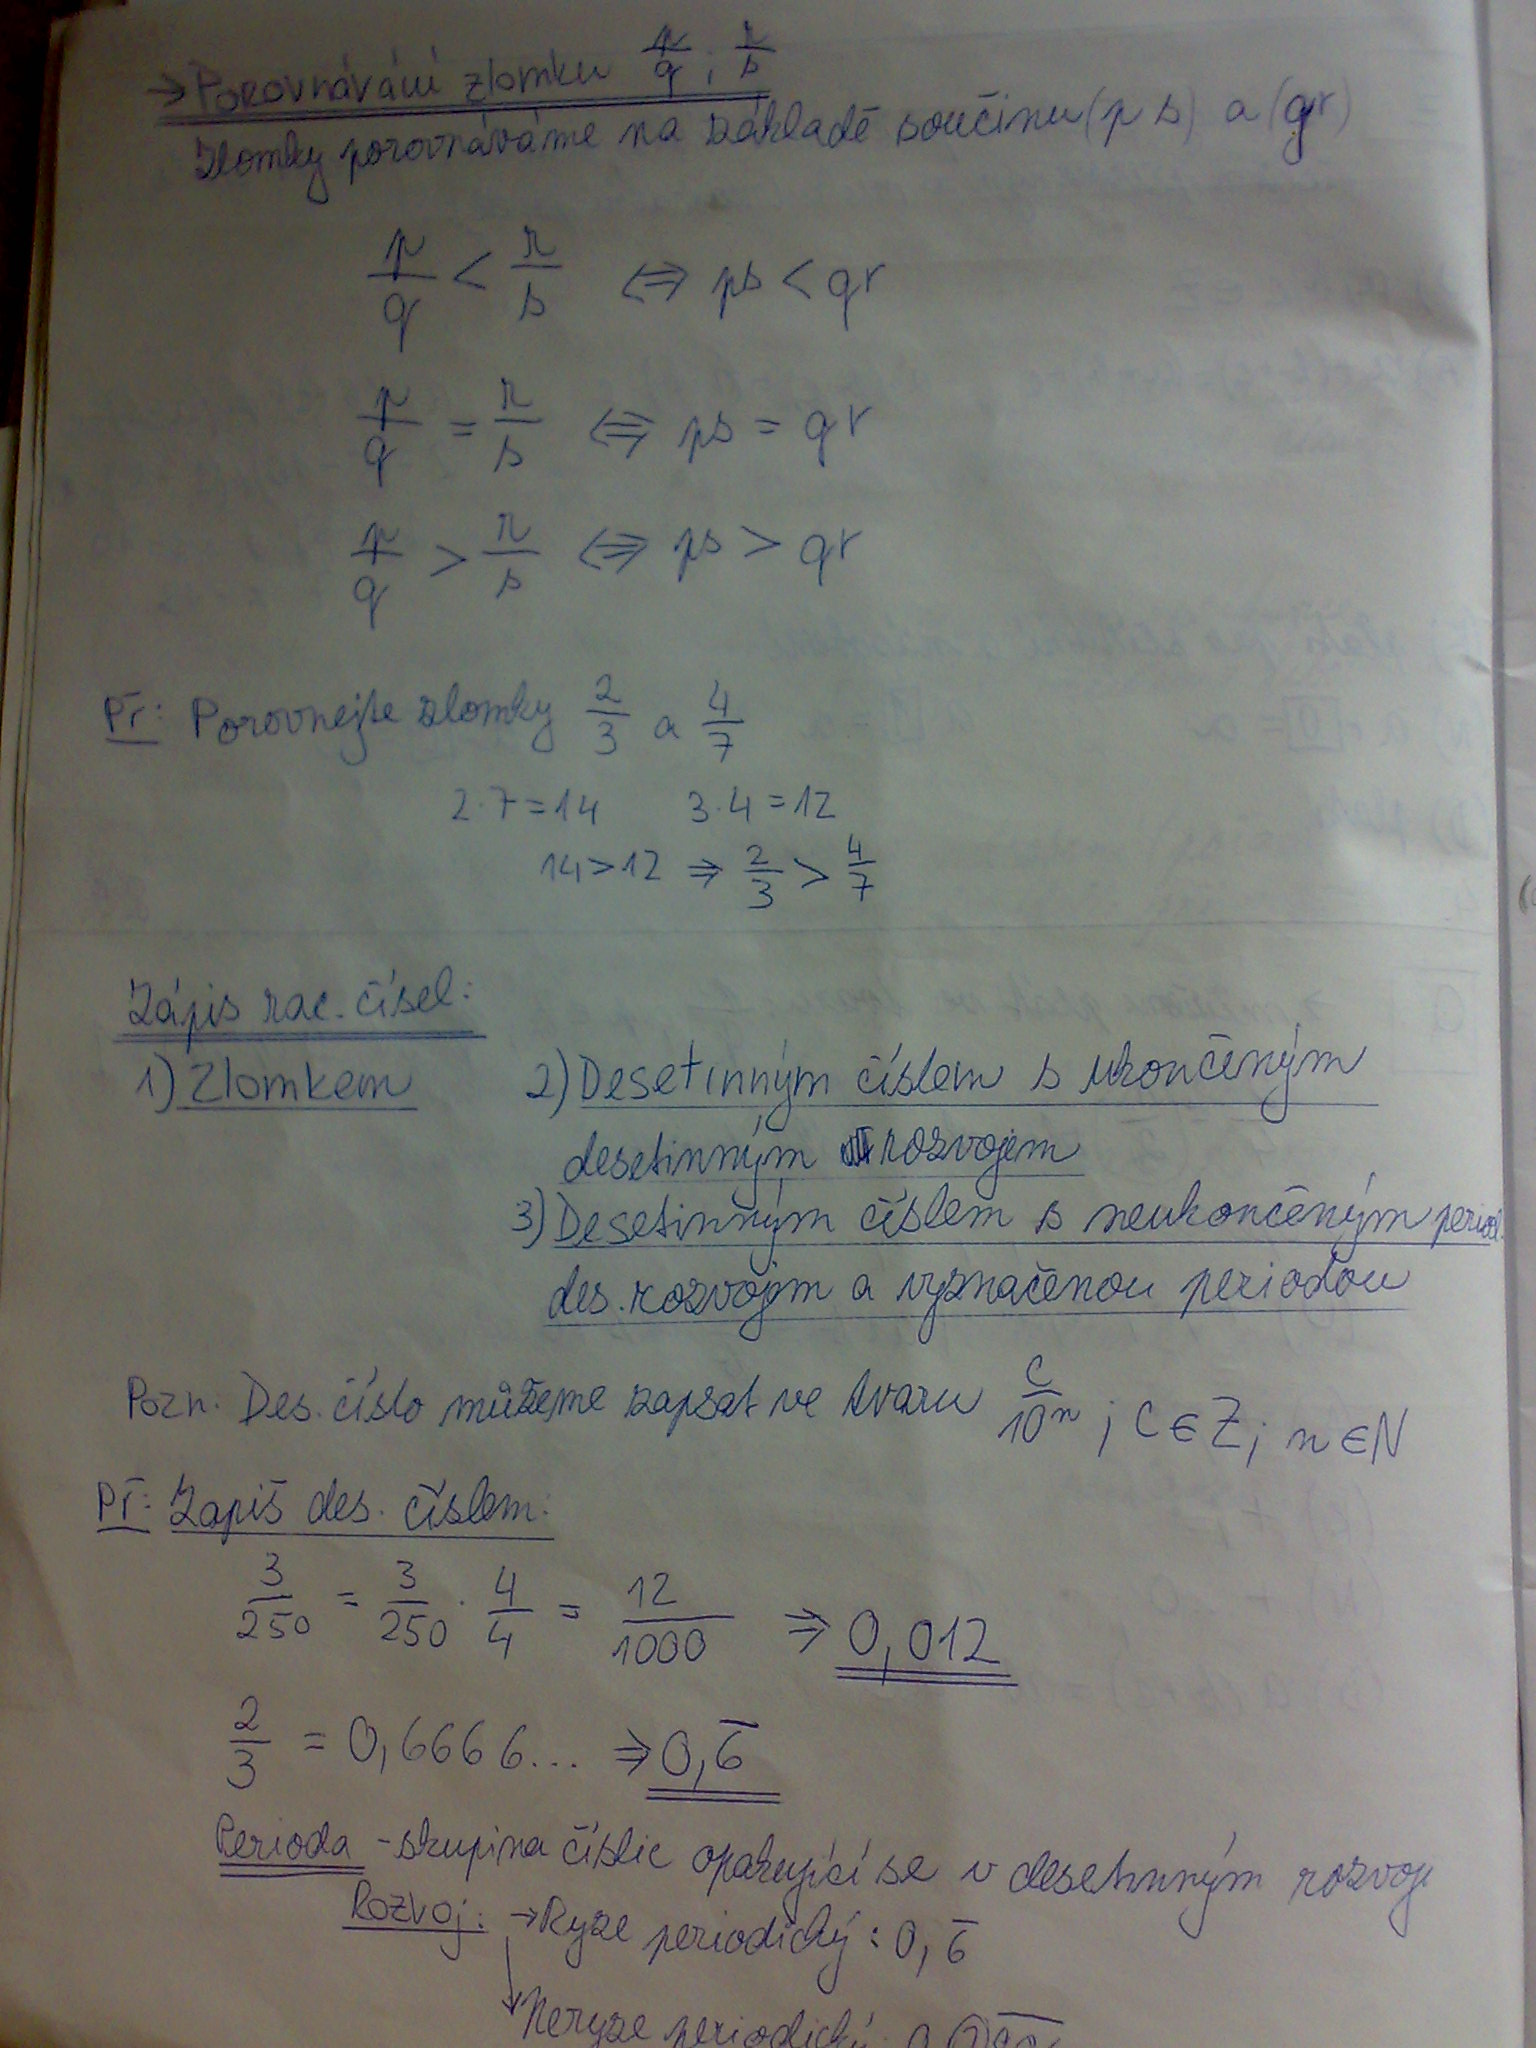 → Porovnávání zlomku p/q ; r/s
Zlomky porovnáváme na základě součinu (p s) a (qr)
p/q < r/s ⇔ ps < qr
p/q = r/s ⇔ ps = qr
p/q > r/s ⇔ ps > qr
Př: Porovnejte zlomky 2/3 a 4/7
2·7=14 3·4=12
14>12 ⇒ 2/3 > 4/7
Zápis rac. čísel:
1) Zlomkem
2) Desetinným číslem s ukončeným
desetinným rozvojem
3) Desetinným číslem s neukončeným period.
des. rozvojem a vyznačenou periodou
Pozn. Des. číslo můžeme zapsat ve tvaru c/10ⁿ ; C∈Z; n∈N
Př: Zapiš des. číslem:
3/250 = 3/250 · 4/4 = 12/1000 ⇒ 0,012
2/3 = 0,6666... ⇒ 0,6̅
Perioda - skupina číslic opakující se v desetinným rozvoji
Rozvoj: → Ryze periodický: 0,6̅
↓ Neryze periodický: